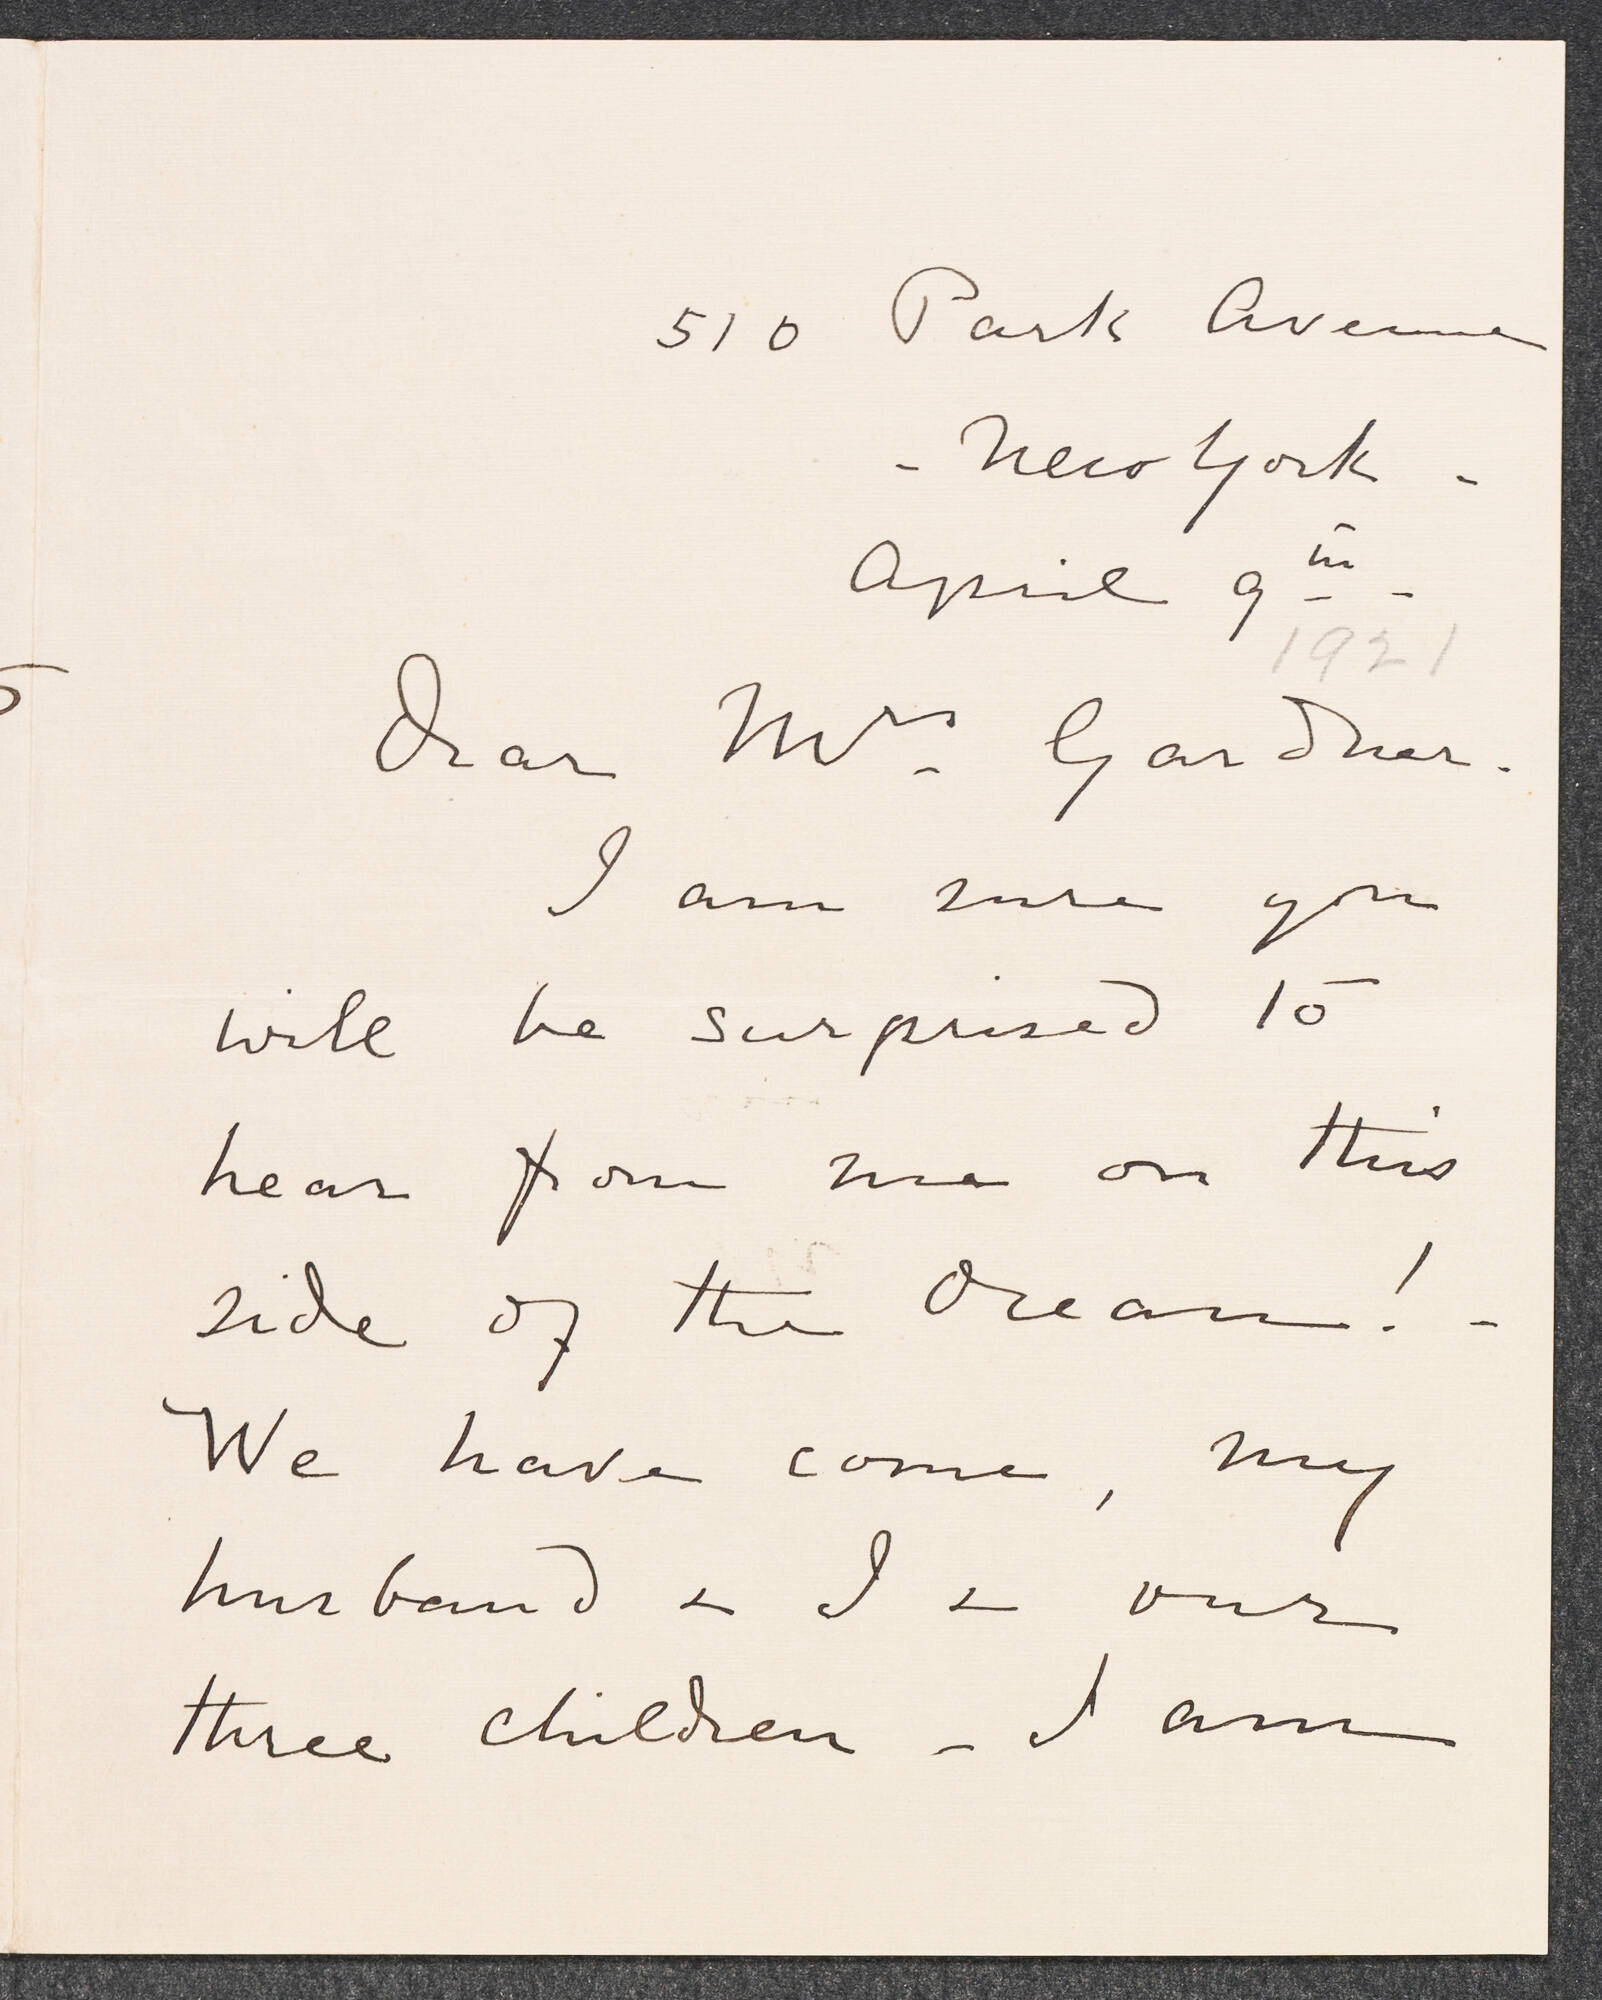 510 Park Avenue
- New York -
April 9th -
1921
Dear Mrs. Gardner.
I am sure you
will be surprised to
hear from me on this
side of the Ocean! -
We have come, my
husband & I & our
three children - I am